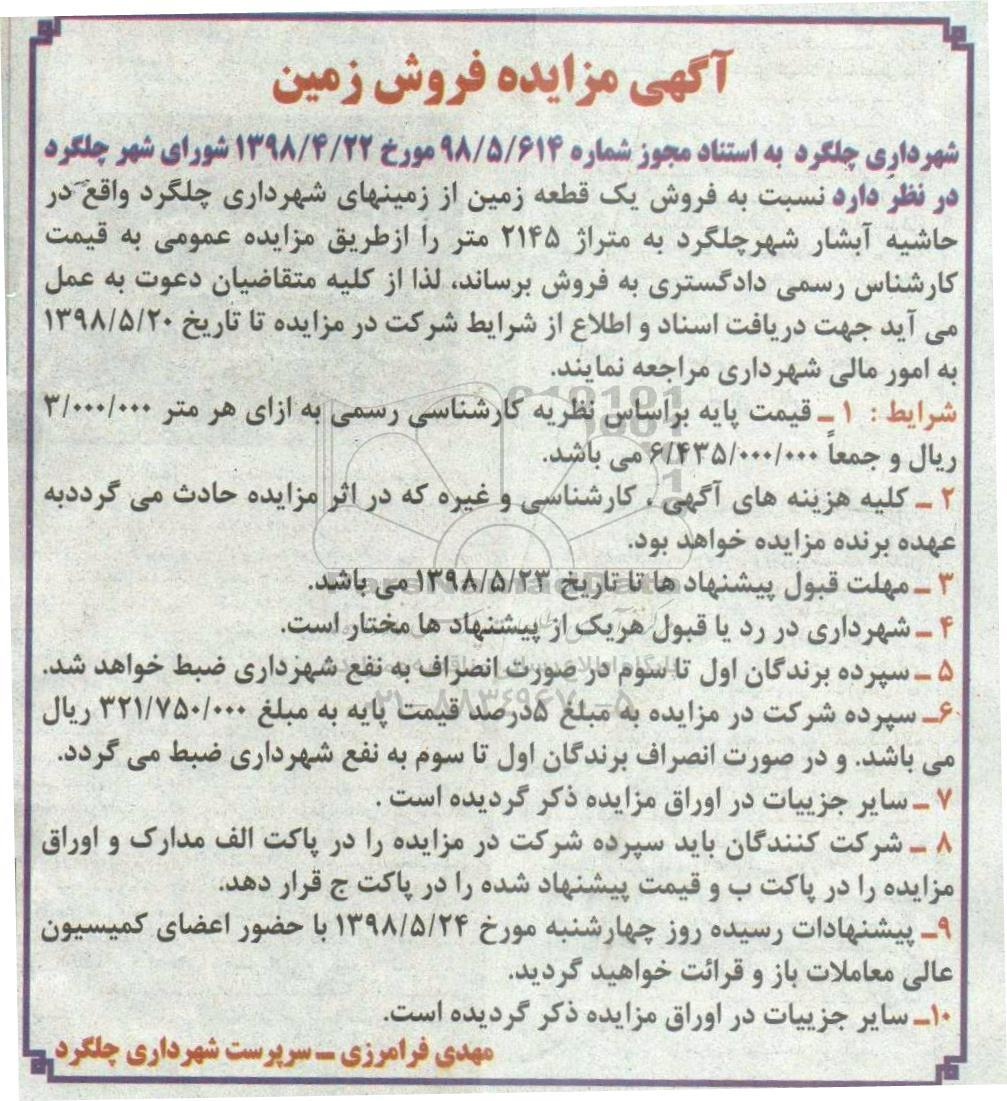 آگهی مزایده فروش زمین
شهرداری چلگرد به استناد مجوز شماره ۹۸/۵/۶۱۴ مورخ ۱۳۹۸/۴/۲۲ شورای شهر چلگرد
در نظر دارد نسبت به فروش یک قطعه زمین از زمینهای شهرداری چلگرد واقع در
حاشیه آبشار شهرچلگرد به متراژ ۲۱۴۵ متر را ازطریق مزایده عمومی به قیمت
کارشناس رسمی دادگستری به فروش برساند، لذا از کلیه متقاضیان دعوت به عمل
می آید جهت دریافت اسناد و اطلاع از شرایط شرکت در مزایده تا تاریخ ۱۳۹۸/۵/۲۰
به امور مالی شهرداری مراجعه نمایند.
شرایط : ۱ ـ قیمت پایه براساس نظریه کارشناسی رسمی به ازای هر متر ۳/۰۰۰/۰۰۰
ریال و جمعاً ۶/۴۳۵/۰۰۰/۰۰۰ می باشد.
۲ ـ کلیه هزینه های آگهی ، کارشناسی و غیره که در اثر مزایده حادث می گرددبه
عهده برنده مزایده خواهد بود.
۳ ـ مهلت قبول پیشنهاد ها تا تاریخ ۱۳۹۸/۵/۲۳ می باشد.
۴ ـ شهرداری در رد یا قبول هریک از پیشنهاد ها مختار است.
۵ ـ سپرده برندگان اول تا سوم در صورت انصراف به نفع شهرداری ضبط خواهد شد.
۶ـ سپرده شرکت در مزایده به مبلغ ۵درصد قیمت پایه به مبلغ ۳۲۱/۷۵۰/۰۰۰ ریال
می باشد. و در صورت انصراف برندگان اول تا سوم به نفع شهرداری ضبط می گردد.
۷ ـ سایر جزییات در اوراق مزایده ذکر گردیده است .
۸ ـ شرکت کنندگان باید سپرده شرکت در مزایده را در پاکت الف مدارک و اوراق
مزایده را در پاکت ب و قیمت پیشنهاد شده را در پاکت ج قرار دهد.
۹ـ پیشنهادات رسیده روز چهارشنبه مورخ ۱۳۹۸/۵/۲۴ با حضور اعضای کمیسیون
عالی معاملات باز و قرائت خواهید گردید.
۱۰ـ سایر جزییات در اوراق مزایده ذکر گردیده است.
مهدی فرامرزی ـ سرپرست شهرداری چلگرد